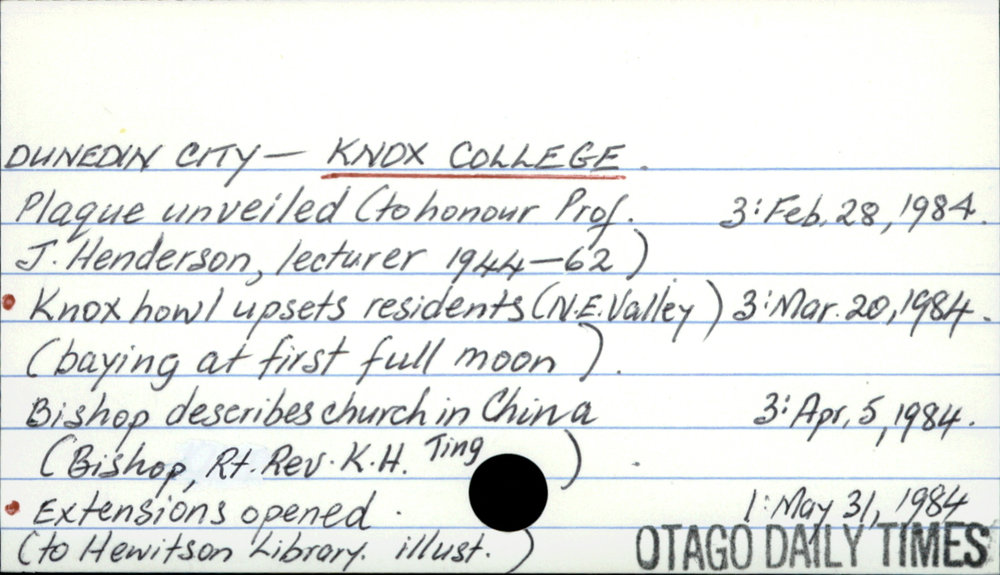 DUNEDIN CITY — KNOX COLLEGE.
Plaque unveiled (to honour Prof. 3: Feb. 28, 1984.
J. Henderson, lecturer 1944—62)
• Knox howl upsets residents (N.E. Valley) 3: Mar. 20, 1984.
(baying at first full moon).
Bishop describes church in China 3: Apr. 5, 1984.
(Bishop, Rt. Rev. K.H. Ting)
• Extensions opened. 1: May 31, 1984
(to Hewitson Library. illust.)
OTAGO DAILY TIMES